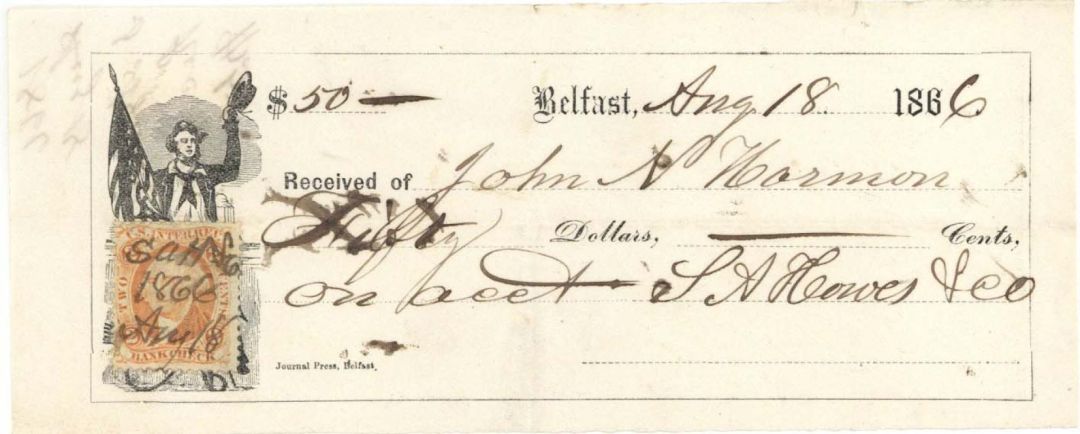 $ 50 — Belfast, Aug 18. 1866
Received of John N Harmon
Fifty Dollars, — Cents,
on acct S A Howes & co
Journal Press, Belfast.
U.S. INTER. REV.
TWO CENTS
SAH & Co
1866
Aug 18
BANK CHECK